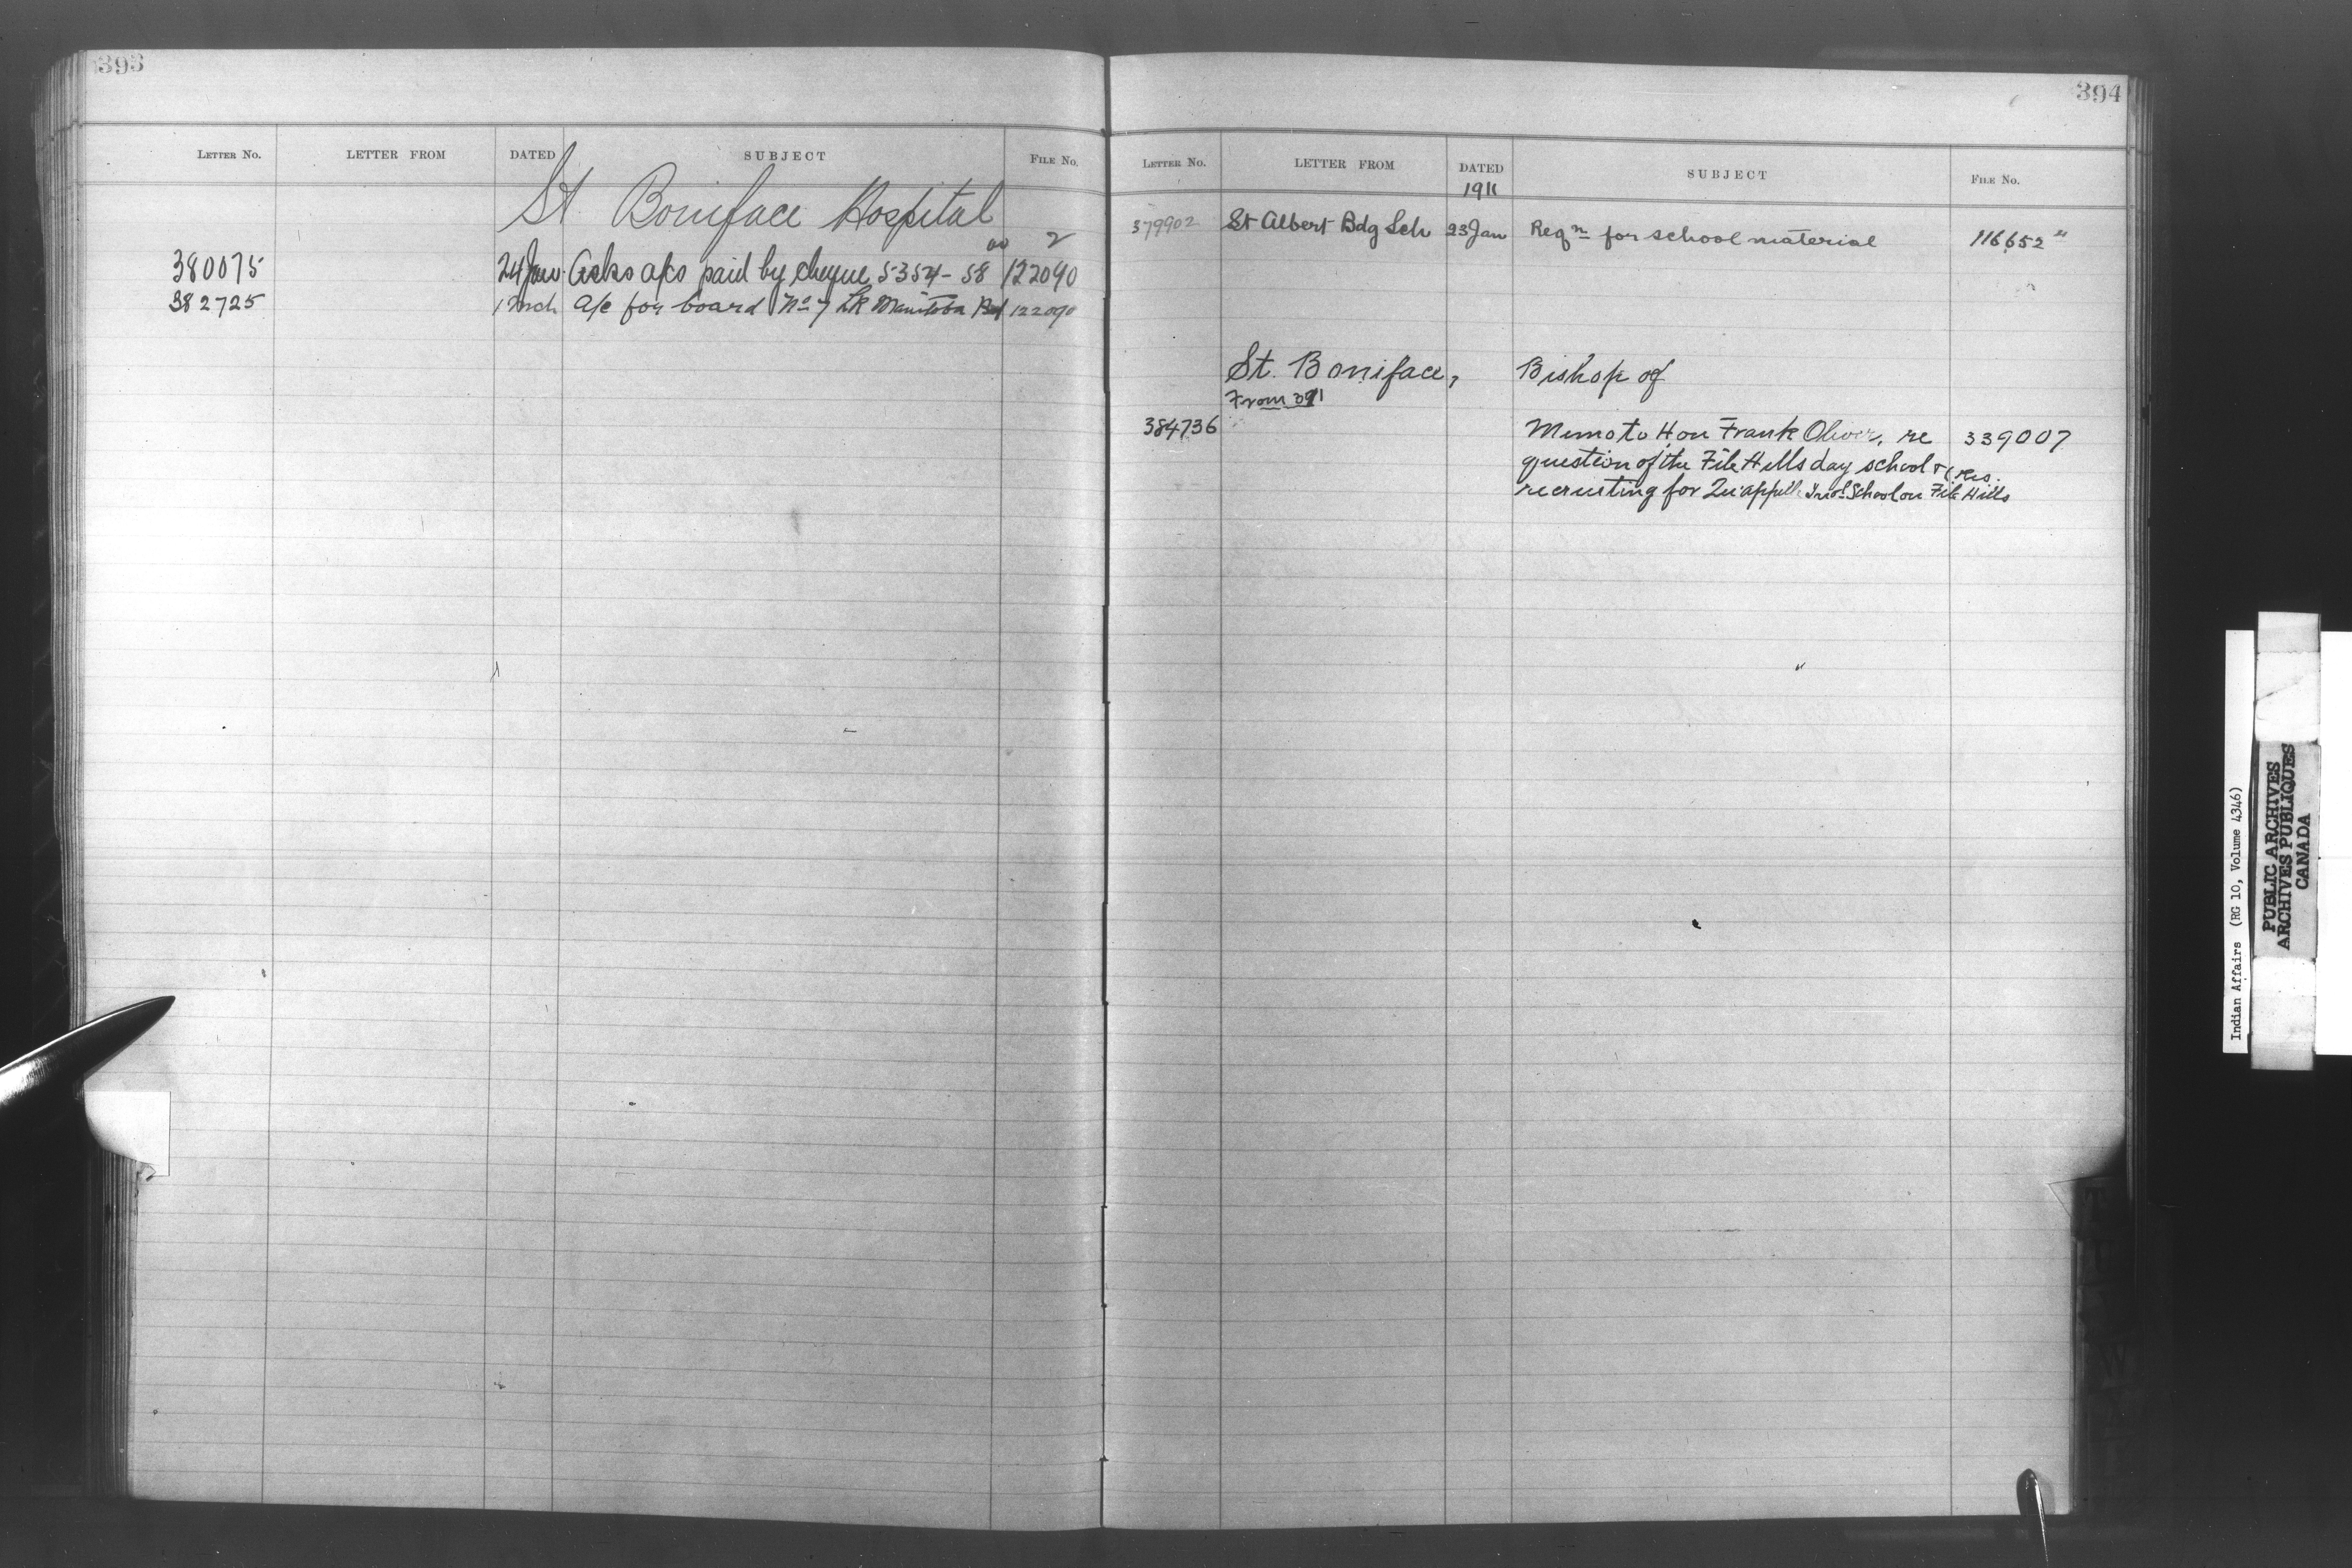 393
LETTER NO. LETTER FROM DATED SUBJECT FILE NO.
St Boniface Hospital
380075 24 Jan Asks a/cs paid by cheque 5354-58 122090 2
382725 1 Mch a/c for board No 7 Lk Manitoba 122090
394
LETTER NO. LETTER FROM DATED SUBJECT FILE NO.
1911
379902 St Albert Bdg Sch 23 Jan Reqn for school material 116652
St. Boniface, Bishop of
From 391
384736 Memo to Hon Frank Oliver, re 339007
question of the File Hills day school &
recruiting for Qu'appelle Indl School on File Hills Res.
Indian Affairs (RG 10, Volume 4346)
PUBLIC ARCHIVES
ARCHIVES PUBLIQUES
CANADA